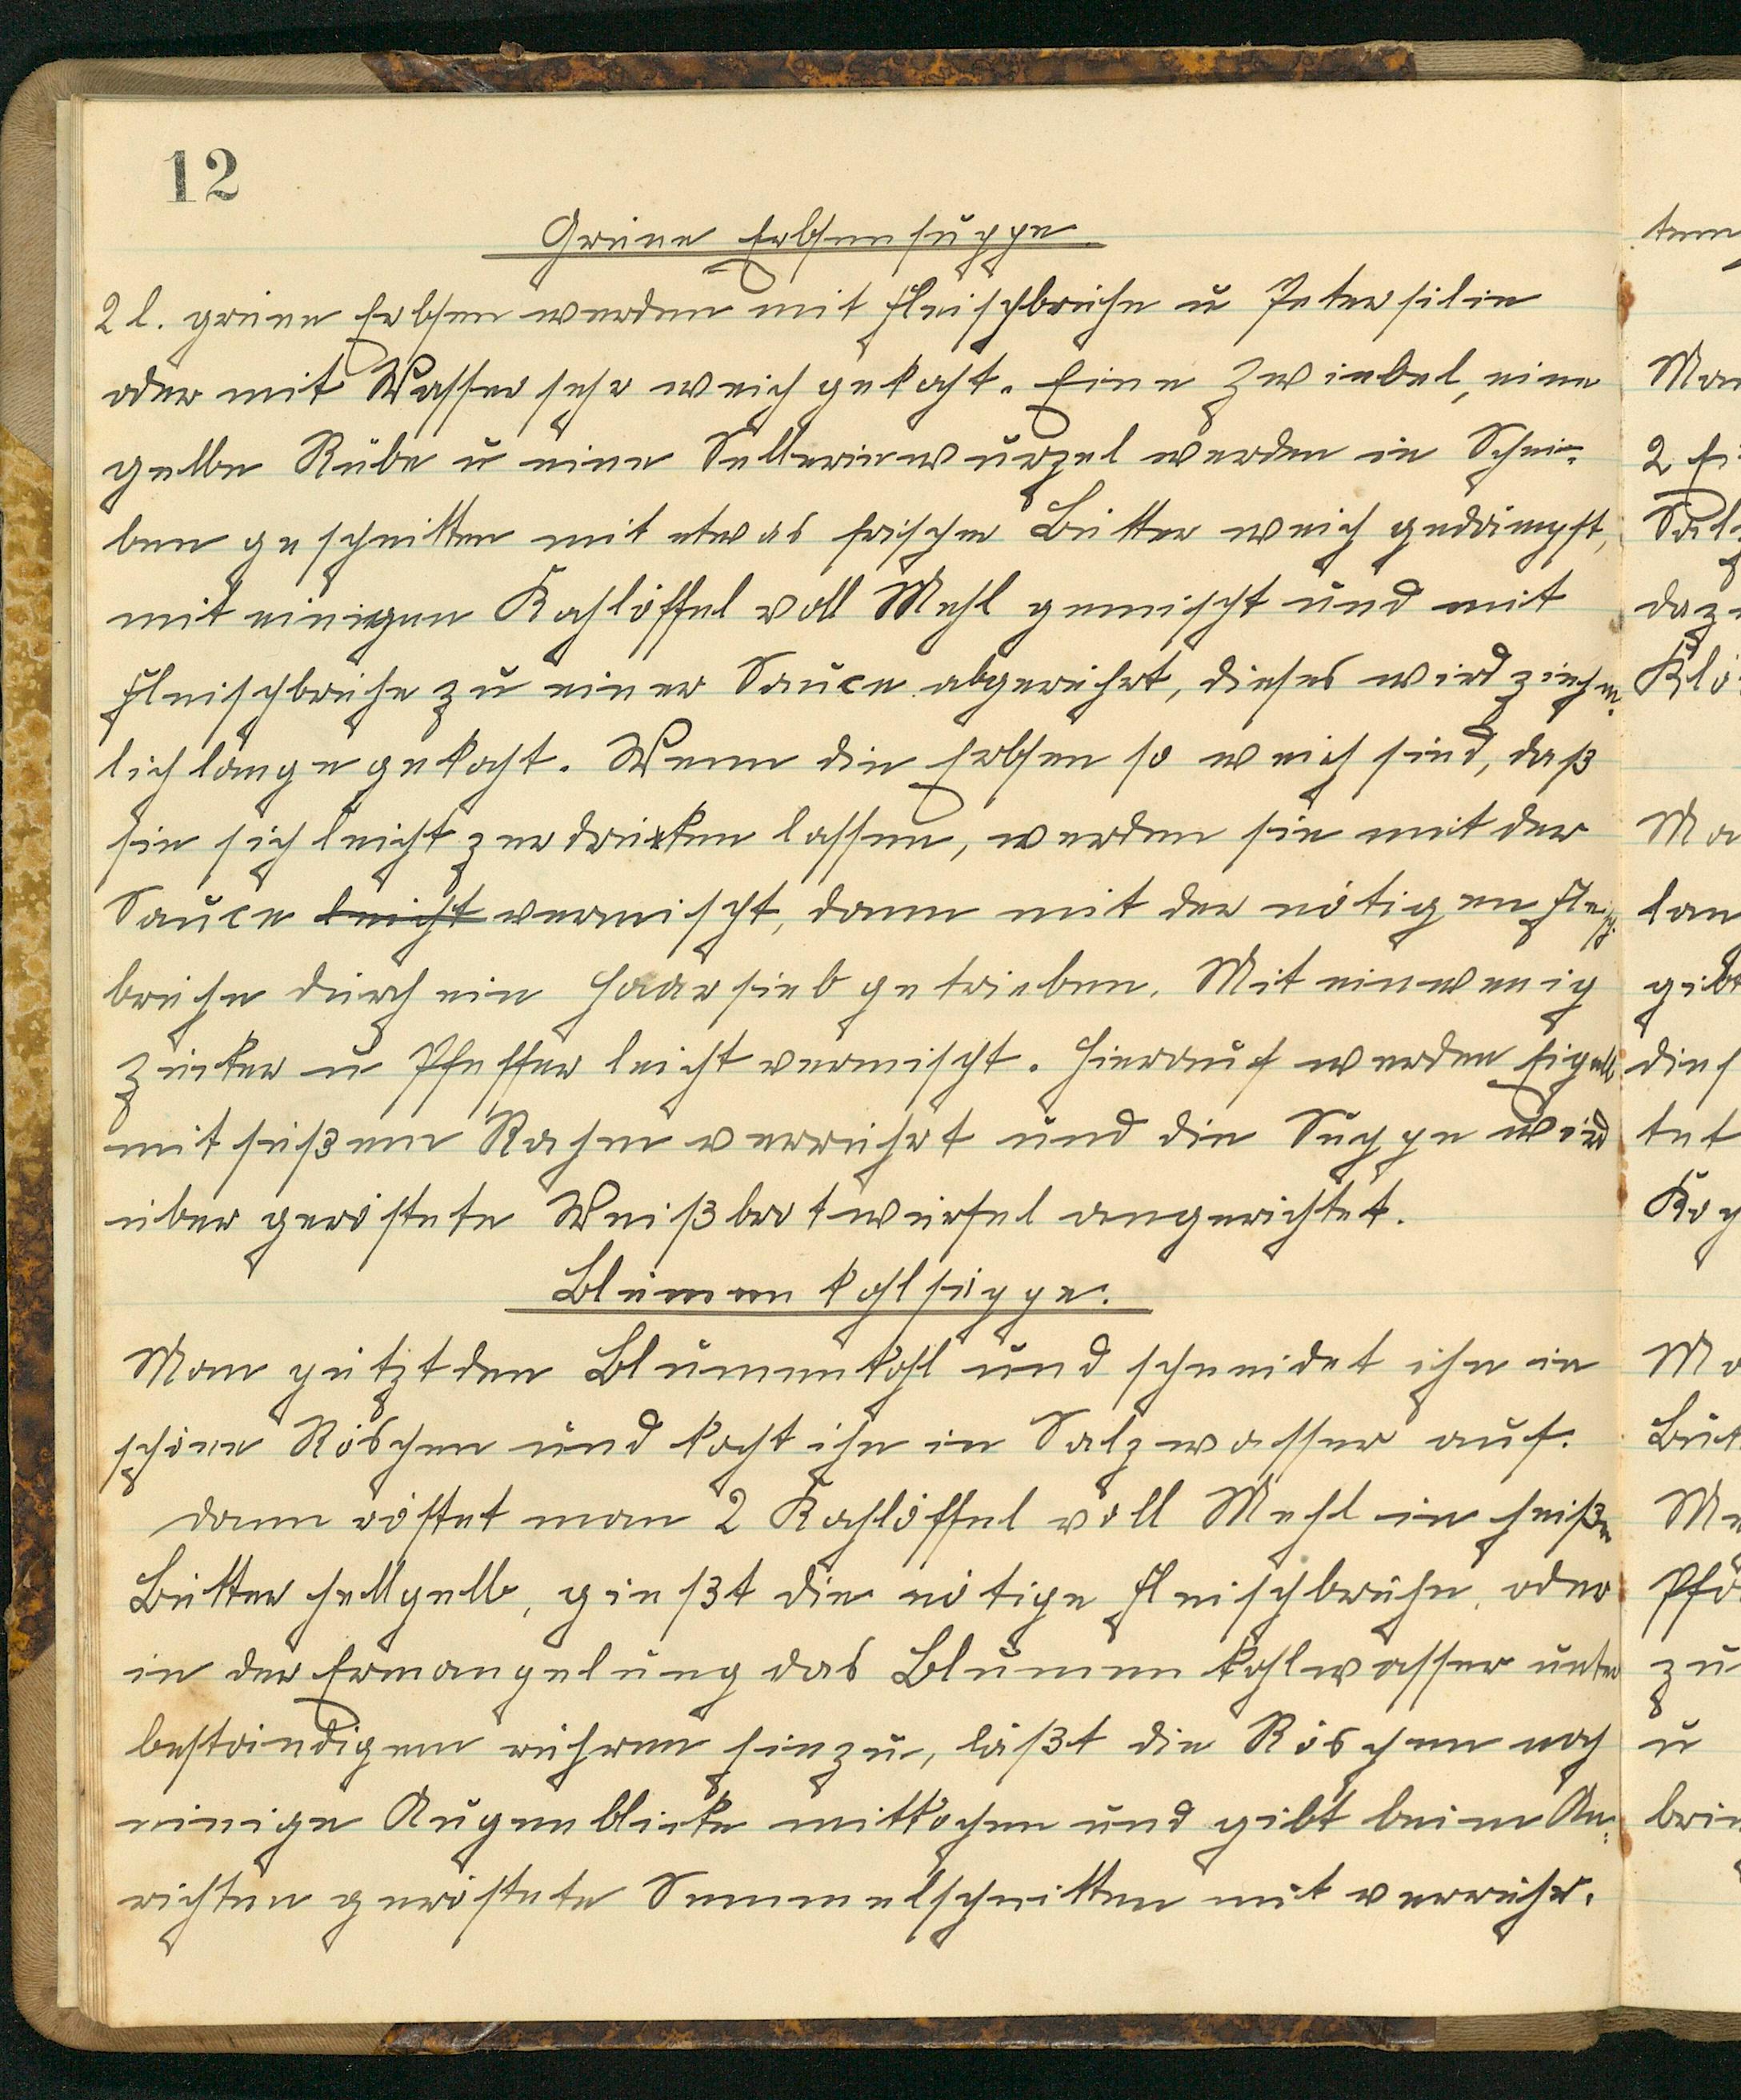 12
Grüne Erbsensuppe.
2 l. grüne Erbsen werden mit Fleischbrühe u Petersilie
oder mit Wasser sehr weich gekocht. Eine Zwiebel, eine
gelbe Rübe u eine Selleriewurzel werden in Schei-
ben geschnitten mit etwas frischer Butter weich gedämpft,
mit einigen Kochlöffel voll Mehl gemischt und mit
Fleischbrühe zu einer Sauce abgerührt, dieses wird ziehm-
lich lange gekocht. Wenn die Erbsen so weich sind, daß
sie sich leicht zerdrücken lassen, werden sie mit der
Sauce leicht vermischt, dann mit der nötigen Fleisch-
brühe durch ein Haarsieb getrieben. Mit ein wenig
Zucker u Pfeffer leicht vermischt. Hierauf werden Eigelb
mit süßem Rahm verrührt und die Suppe wird
über geröstete Weißbrotwürfel angerichtet.
Blumenkohlsuppe.
Man putzt den Blumenkohl und schneidet ihn in
schöne Röschen und kocht ihn in Salzwasser auf.
dann röstet man 2 Kochlöffel voll Mehl in heißer
Butter hellgelb, gießt die nötige Fleischbrühe, oder
in der Ermangelung das Blumenkohlwasser unter
beständigem rühren hinzu, läßt die Röschen noch
einige Augenblicke mitkochen und gibt beim An-
richten geröstete Semmelschnitten mit verrühr.
tem
Man
2 Ei
Salz
dazu
Klö
Ma
lan
gibt
dies
tet
Kop
Ma
But
Me
Pfö
zu
u
brin